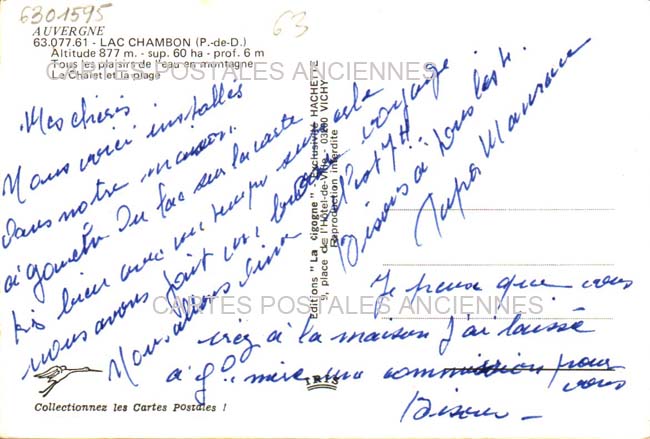 6301595
63
AUVERGNE
63.077.61 - LAC CHAMBON (P.-de-D.)
Altitude 877 m. - sup. 60 ha - prof. 6 m
Tous les plaisirs de l'eau en montagne
Le Chalet et la plage
CARTES POSTALES ANCIENNES
Mes chéris
Nous voici installés
dans notre maison.
à gauche du lac sur la carte
très bien avec un temps superbe
nous avons fait un bon voyage
Nous allons bien
Bisous à tous les 4.
Papé Maurice
Je pense que vous
irez à la maison j'ai laissé
à une commission pour
vous
Bisous -
Editions "La Cigogne" - Exclusivité HACHETTE
9, place de l'Hôtel-de-Ville - 03200 VICHY
Reproduction interdite
CARTES POSTALES ANCIENNES
IRIS
Collectionnez les Cartes Postales !